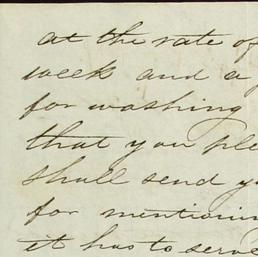 at the rate of
week and a
for washing
that you
shall send
for
it has to serve